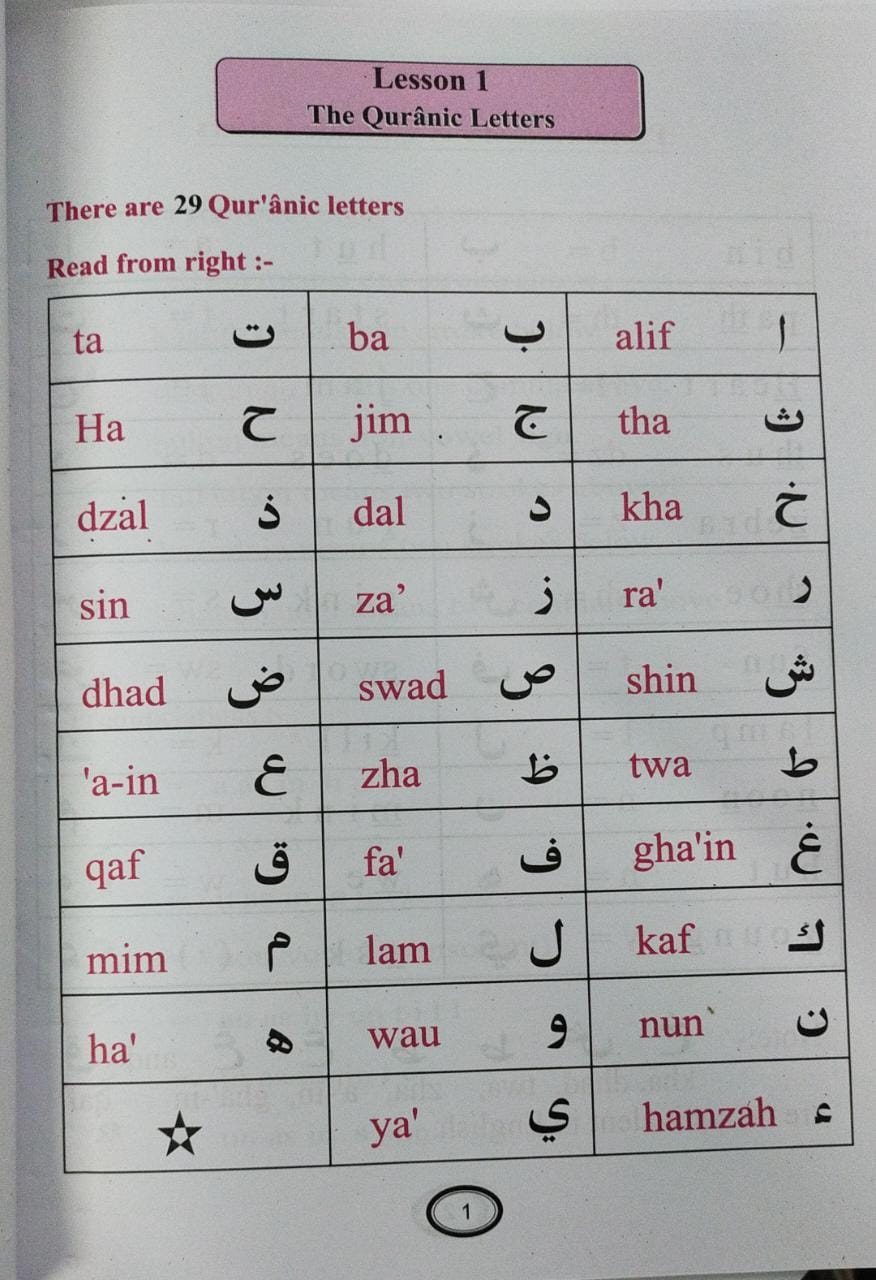 Lesson 1
The Qurânic Letters
There are 29 Qur'ânic letters
Read from right :-
ا alif ب ba ت ta
ث tha ج jim ح Ha
خ kha د dal ذ dzal
ر ra' ز za’ س sin
ش shin ص swad ض dhad
ط twa ظ zha ع 'a-in
غ gha'in ف fa' ق qaf
ك kaf ل lam م mim
ن nun و wau ه ha'
ء hamzah ي ya' ☆
1